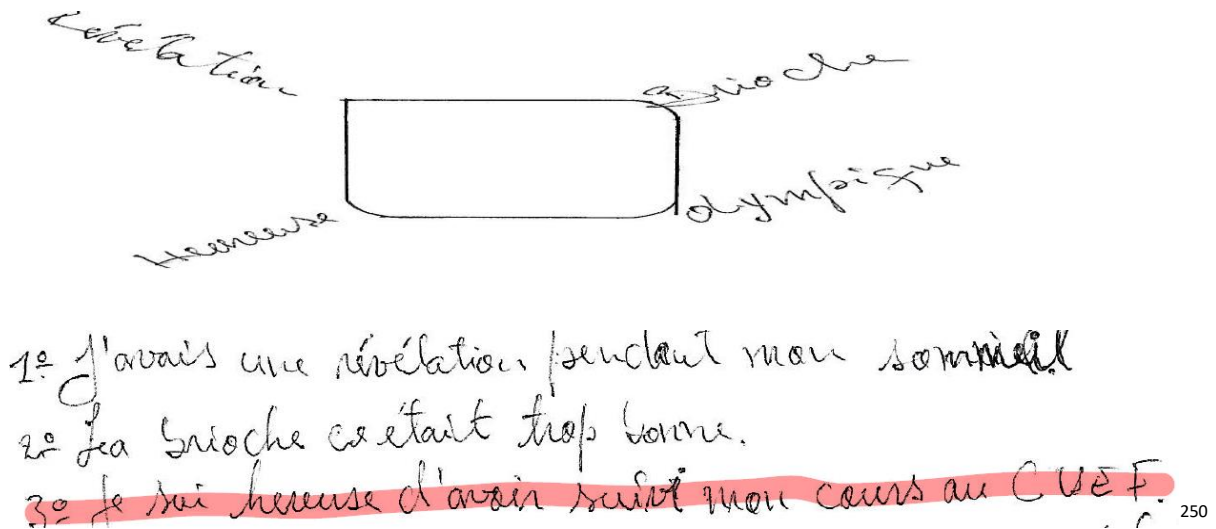 révélation
Brioche
Heureuse
olympique
1º J'avais une révélation pendant mon sommeil
2º La brioche ce était trop bonne.
3º Je sui hereuse d'avoir suivt mon cours au CUEF.
250